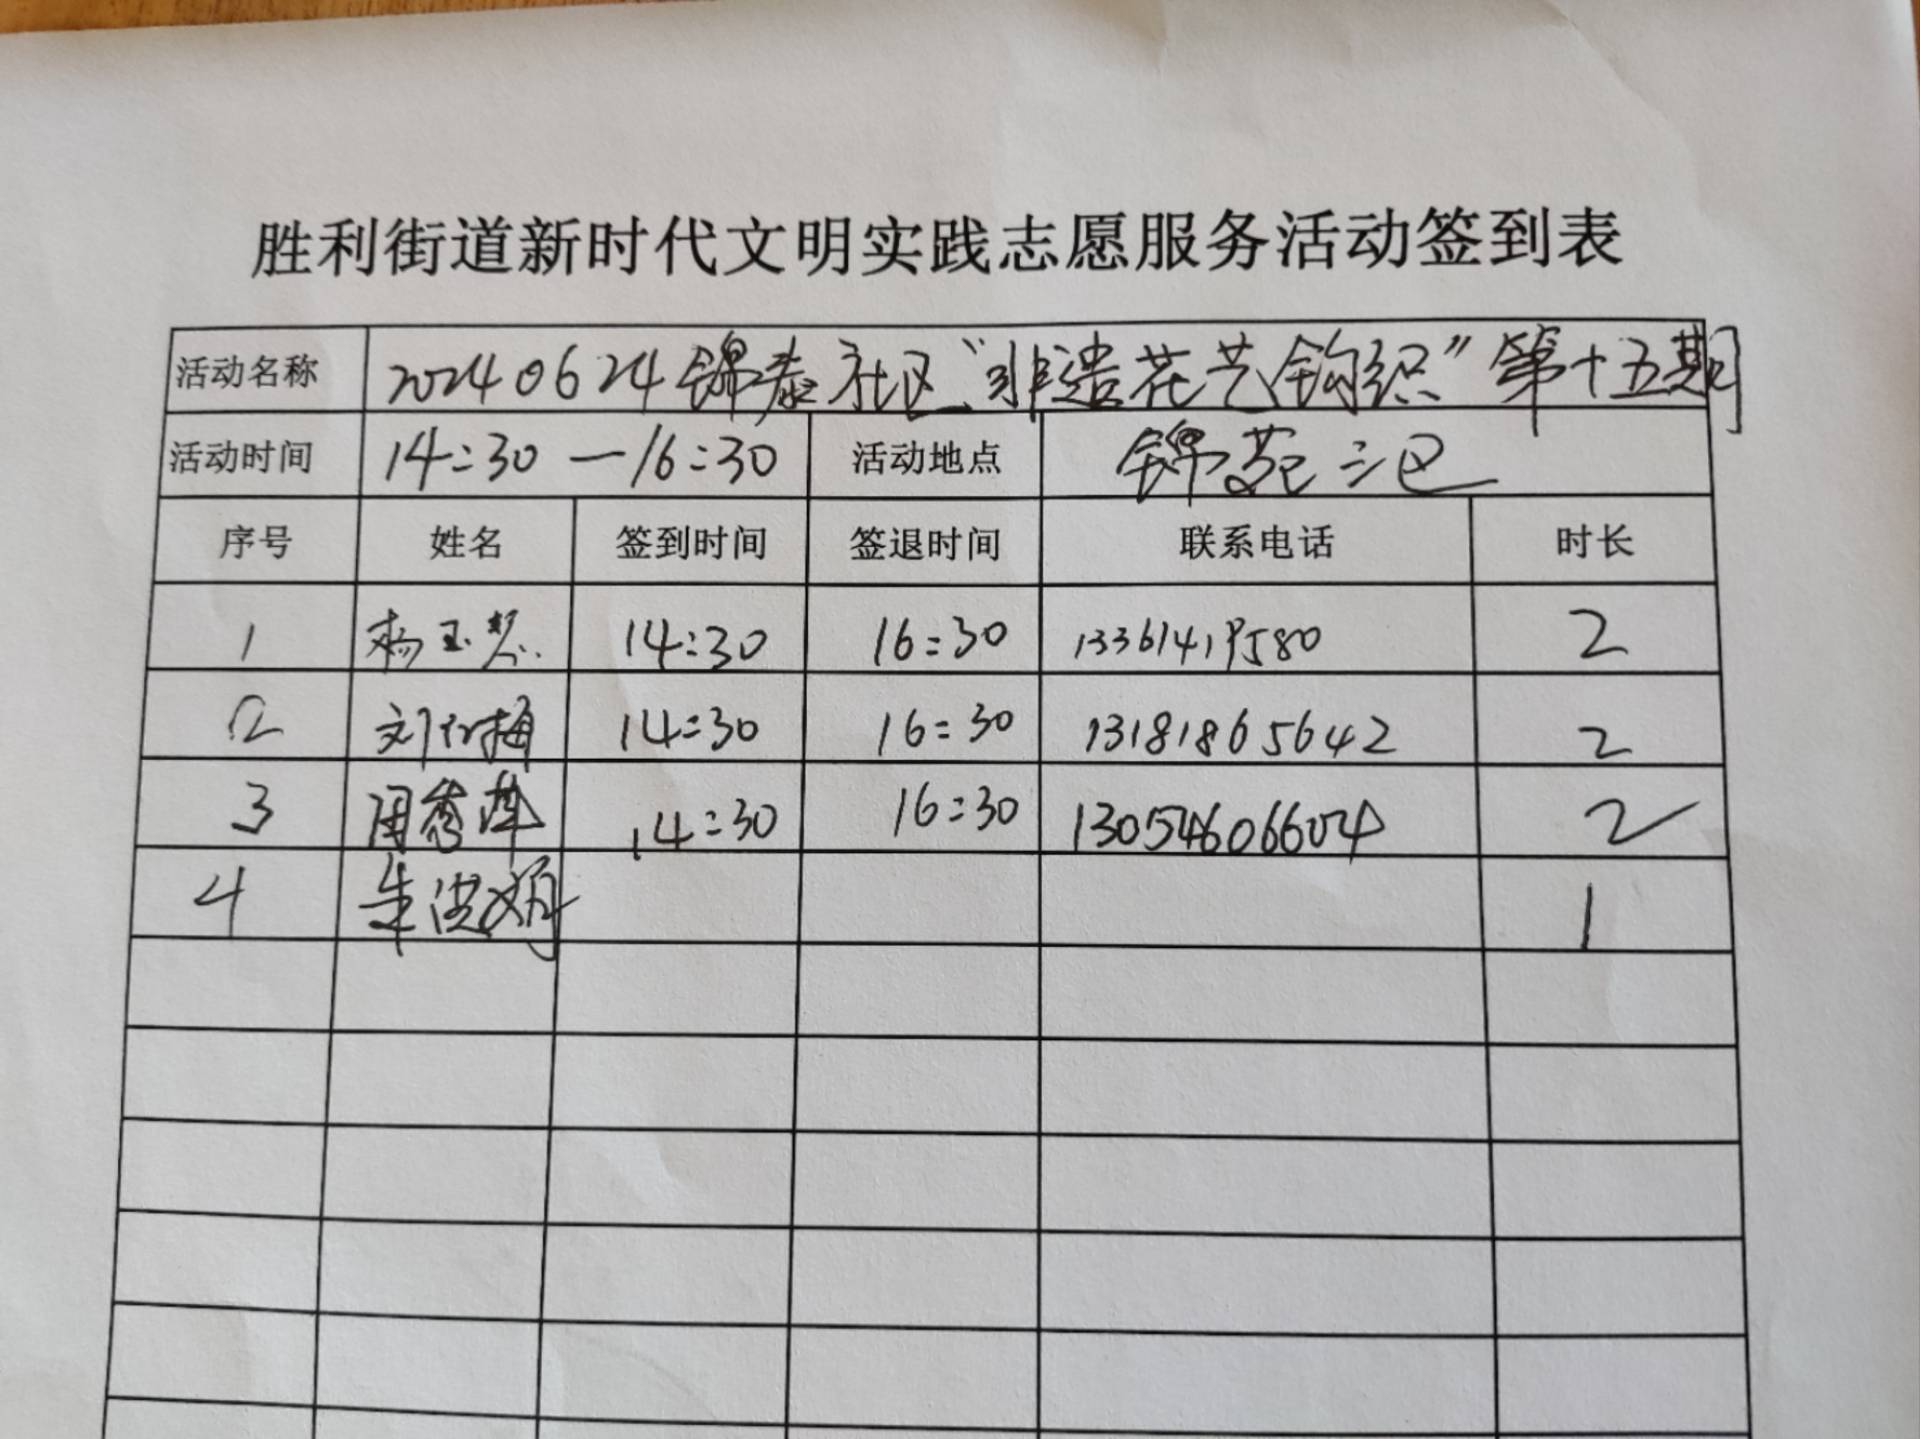 胜利街道新时代文明实践志愿服务活动签到表
活动名称 20240624锦泰社区“非遗花艺钩织”第十五期
活动时间 14:30—16:30 活动地点 锦苑三区
序号 姓名 签到时间 签退时间 联系电话 时长
1 杨玉 14:30 16:30 2
2 刘 梅 14:30 16:30 13181865642 2
3 周秀萍 14:30 16:30 13054606604 2
4 朱洪娟 1